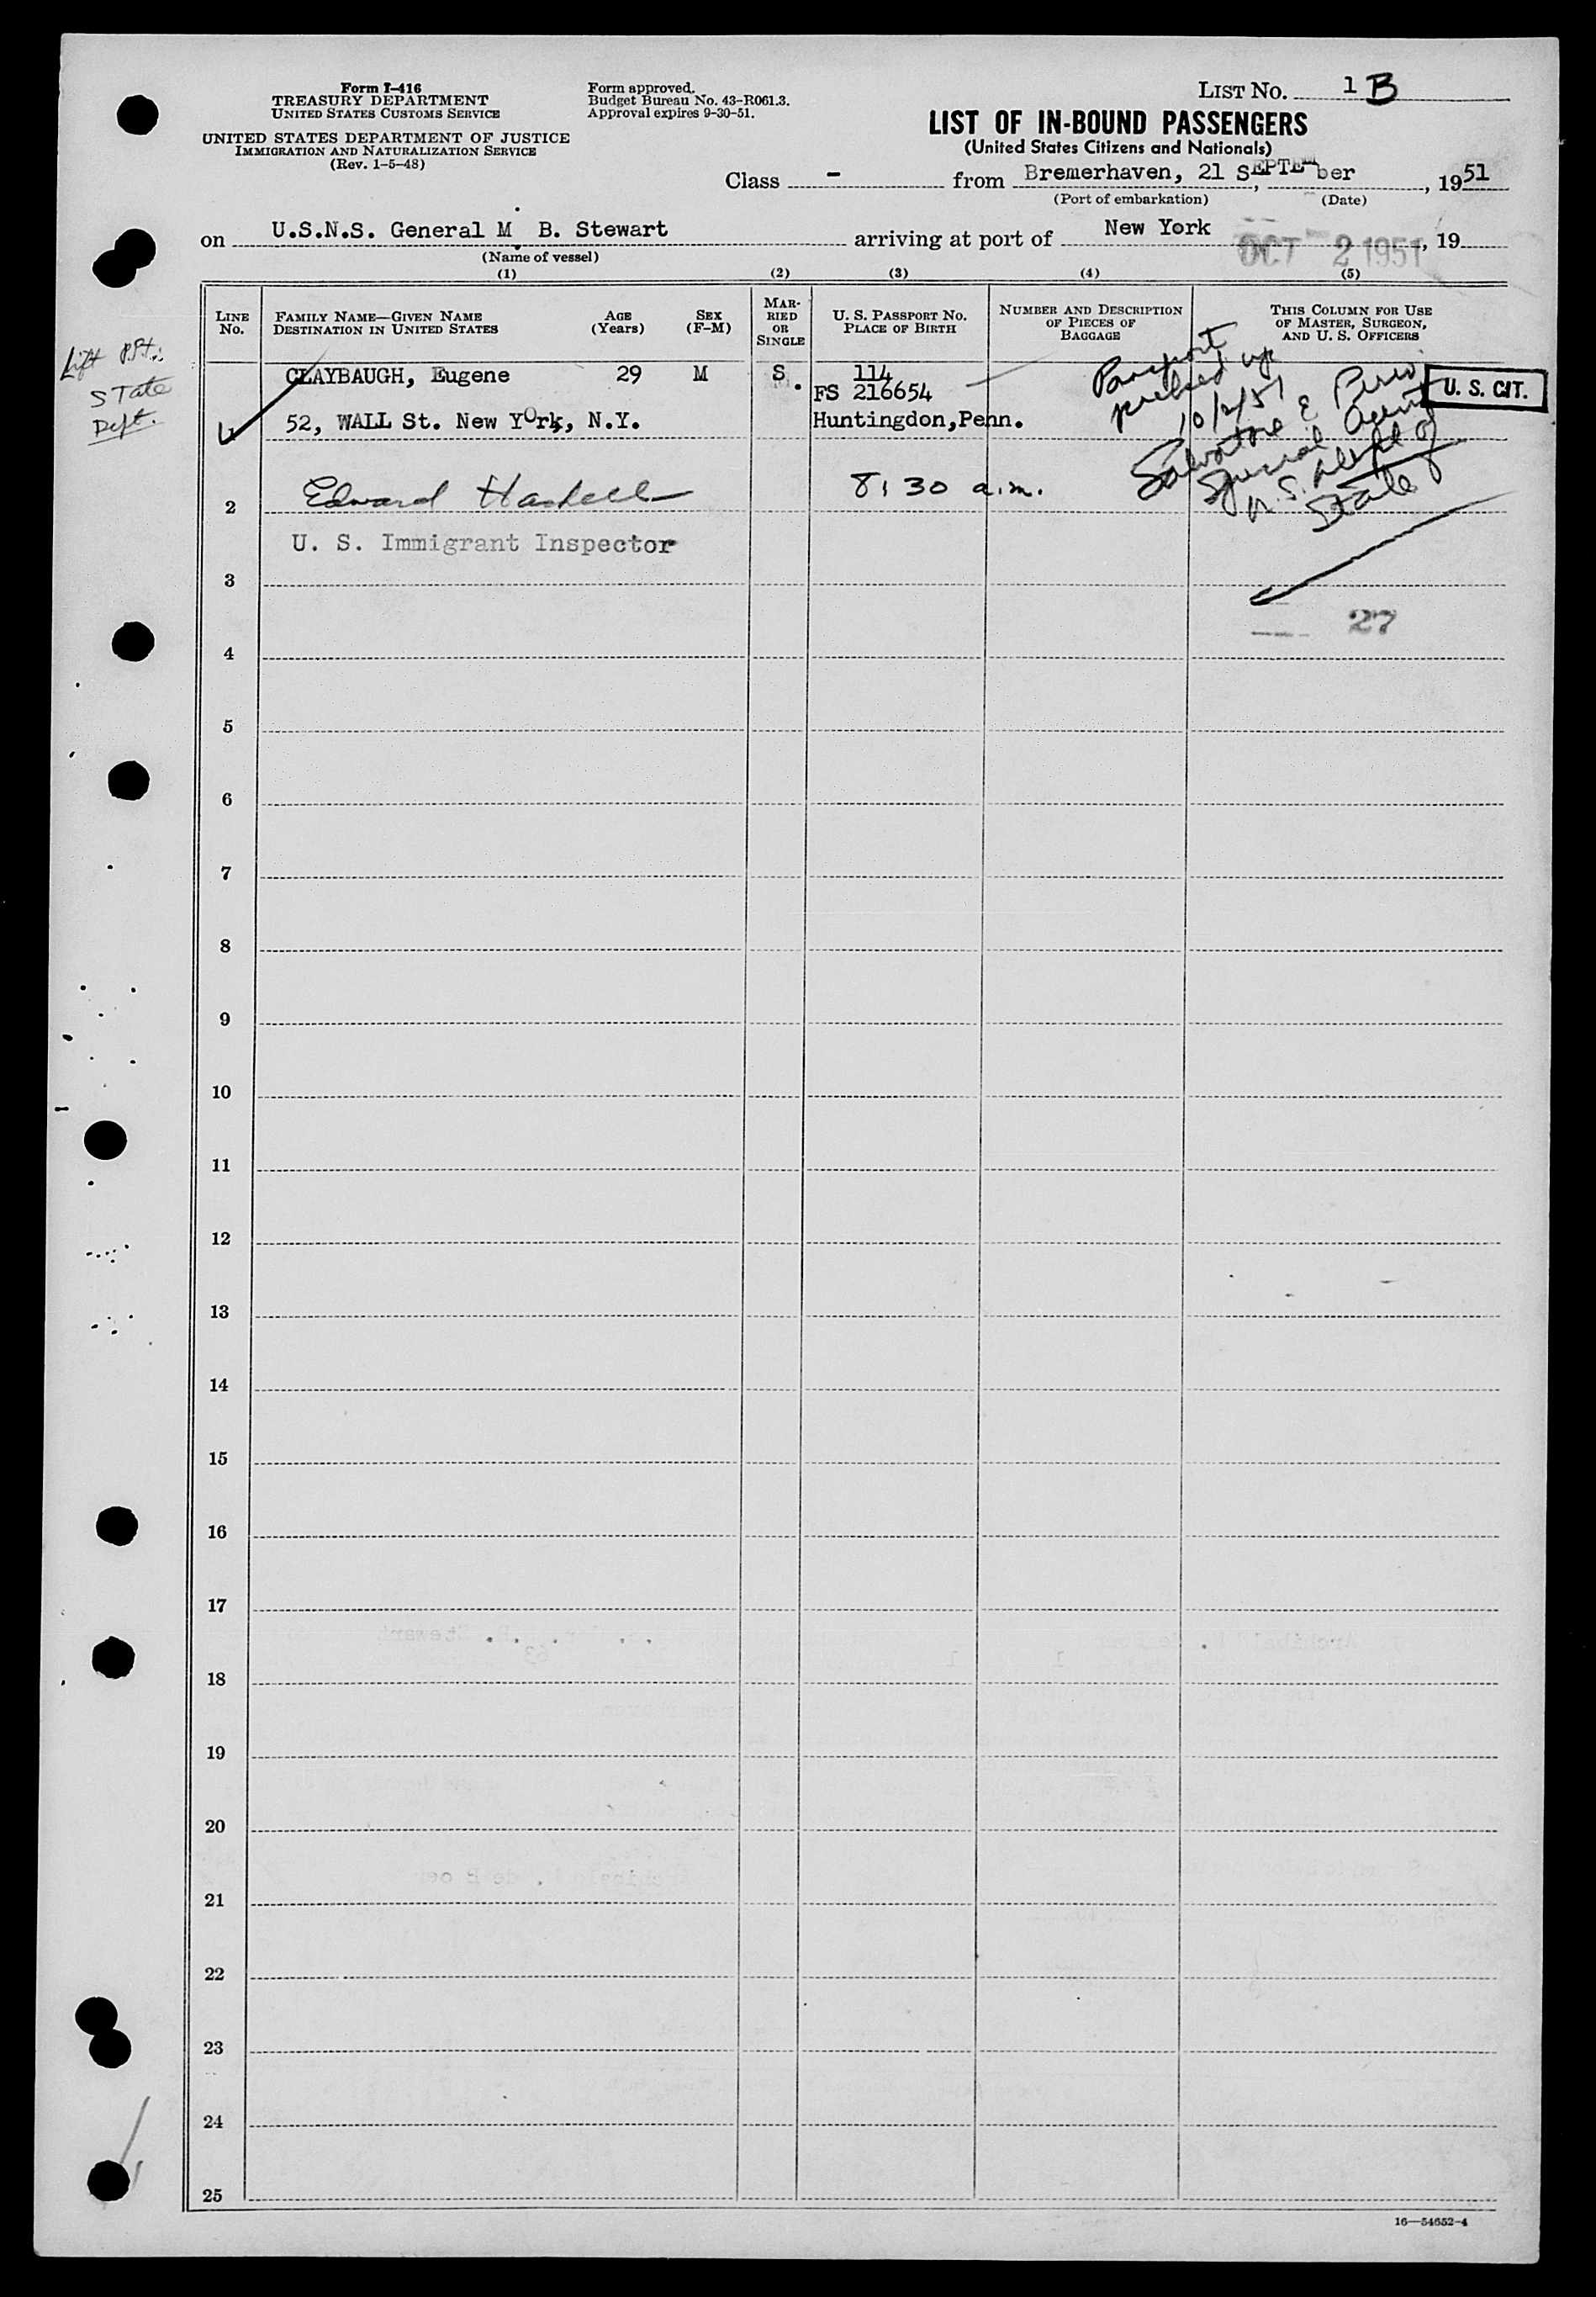 Form I-416
TREASURY DEPARTMENT
UNITED STATES CUSTOMS SERVICE
UNITED STATES DEPARTMENT OF JUSTICE
IMMIGRATION AND NATURALIZATION SERVICE
(Rev. 1-5-48)
Form approved.
Budget Bureau No. 43-R061.3.
Approval expires 9-30-51.
LIST NO. 1 B
LIST OF IN-BOUND PASSENGERS
(United States Citizens and Nationals)
Class - from Bremerhaven, 21 SEPTEmber, 1951
(Port of embarkation) (Date)
on U.S.N.S. General M. B. Stewart arriving at port of New York OCT 2 1951, 19
(Name of vessel)
(1) (2) (3) (4) (5)
LINE No.
FAMILY NAME—GIVEN NAME
DESTINATION IN UNITED STATES
AGE (Years)
SEX (F-M)
MARRIED OR SINGLE
U. S. PASSPORT NO.
PLACE OF BIRTH
NUMBER AND DESCRIPTION OF PIECES OF BAGGAGE
THIS COLUMN FOR USE OF MASTER, SURGEON, AND U. S. OFFICERS
Lift P.Pt.:
STate
Dept.
CLAYBAUGH, Eugene 29 M S. 114
FS 216654
52, WALL St. New YOrk, N.Y. Huntingdon,Penn.
U. S. CIT.
Passport
picked up
10/2/51
Salvatore E
Special Agent
U.S. Dept of
State
2 Edward 8:30 a.m.
U. S. Immigrant Inspector
3
27
4
5
6
7
8
9
10
11
12
13
14
15
16
17
18
19
20
21
22
23
24
25
16—54652-4